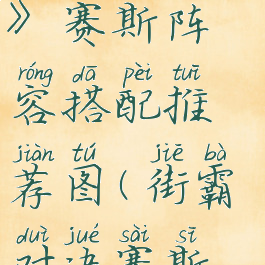 》赛斯阵
róng dā pèi tuī
容搭配推
jiàn tú jiē bà
荐图(街霸
duì jué sài sī
对决赛斯